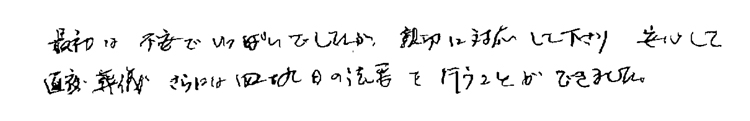 最初は不安でいっぱいでしたが、親切に対応して下さり 安心して
直葬葬儀 さらには四十九日の法要を行うことができました。